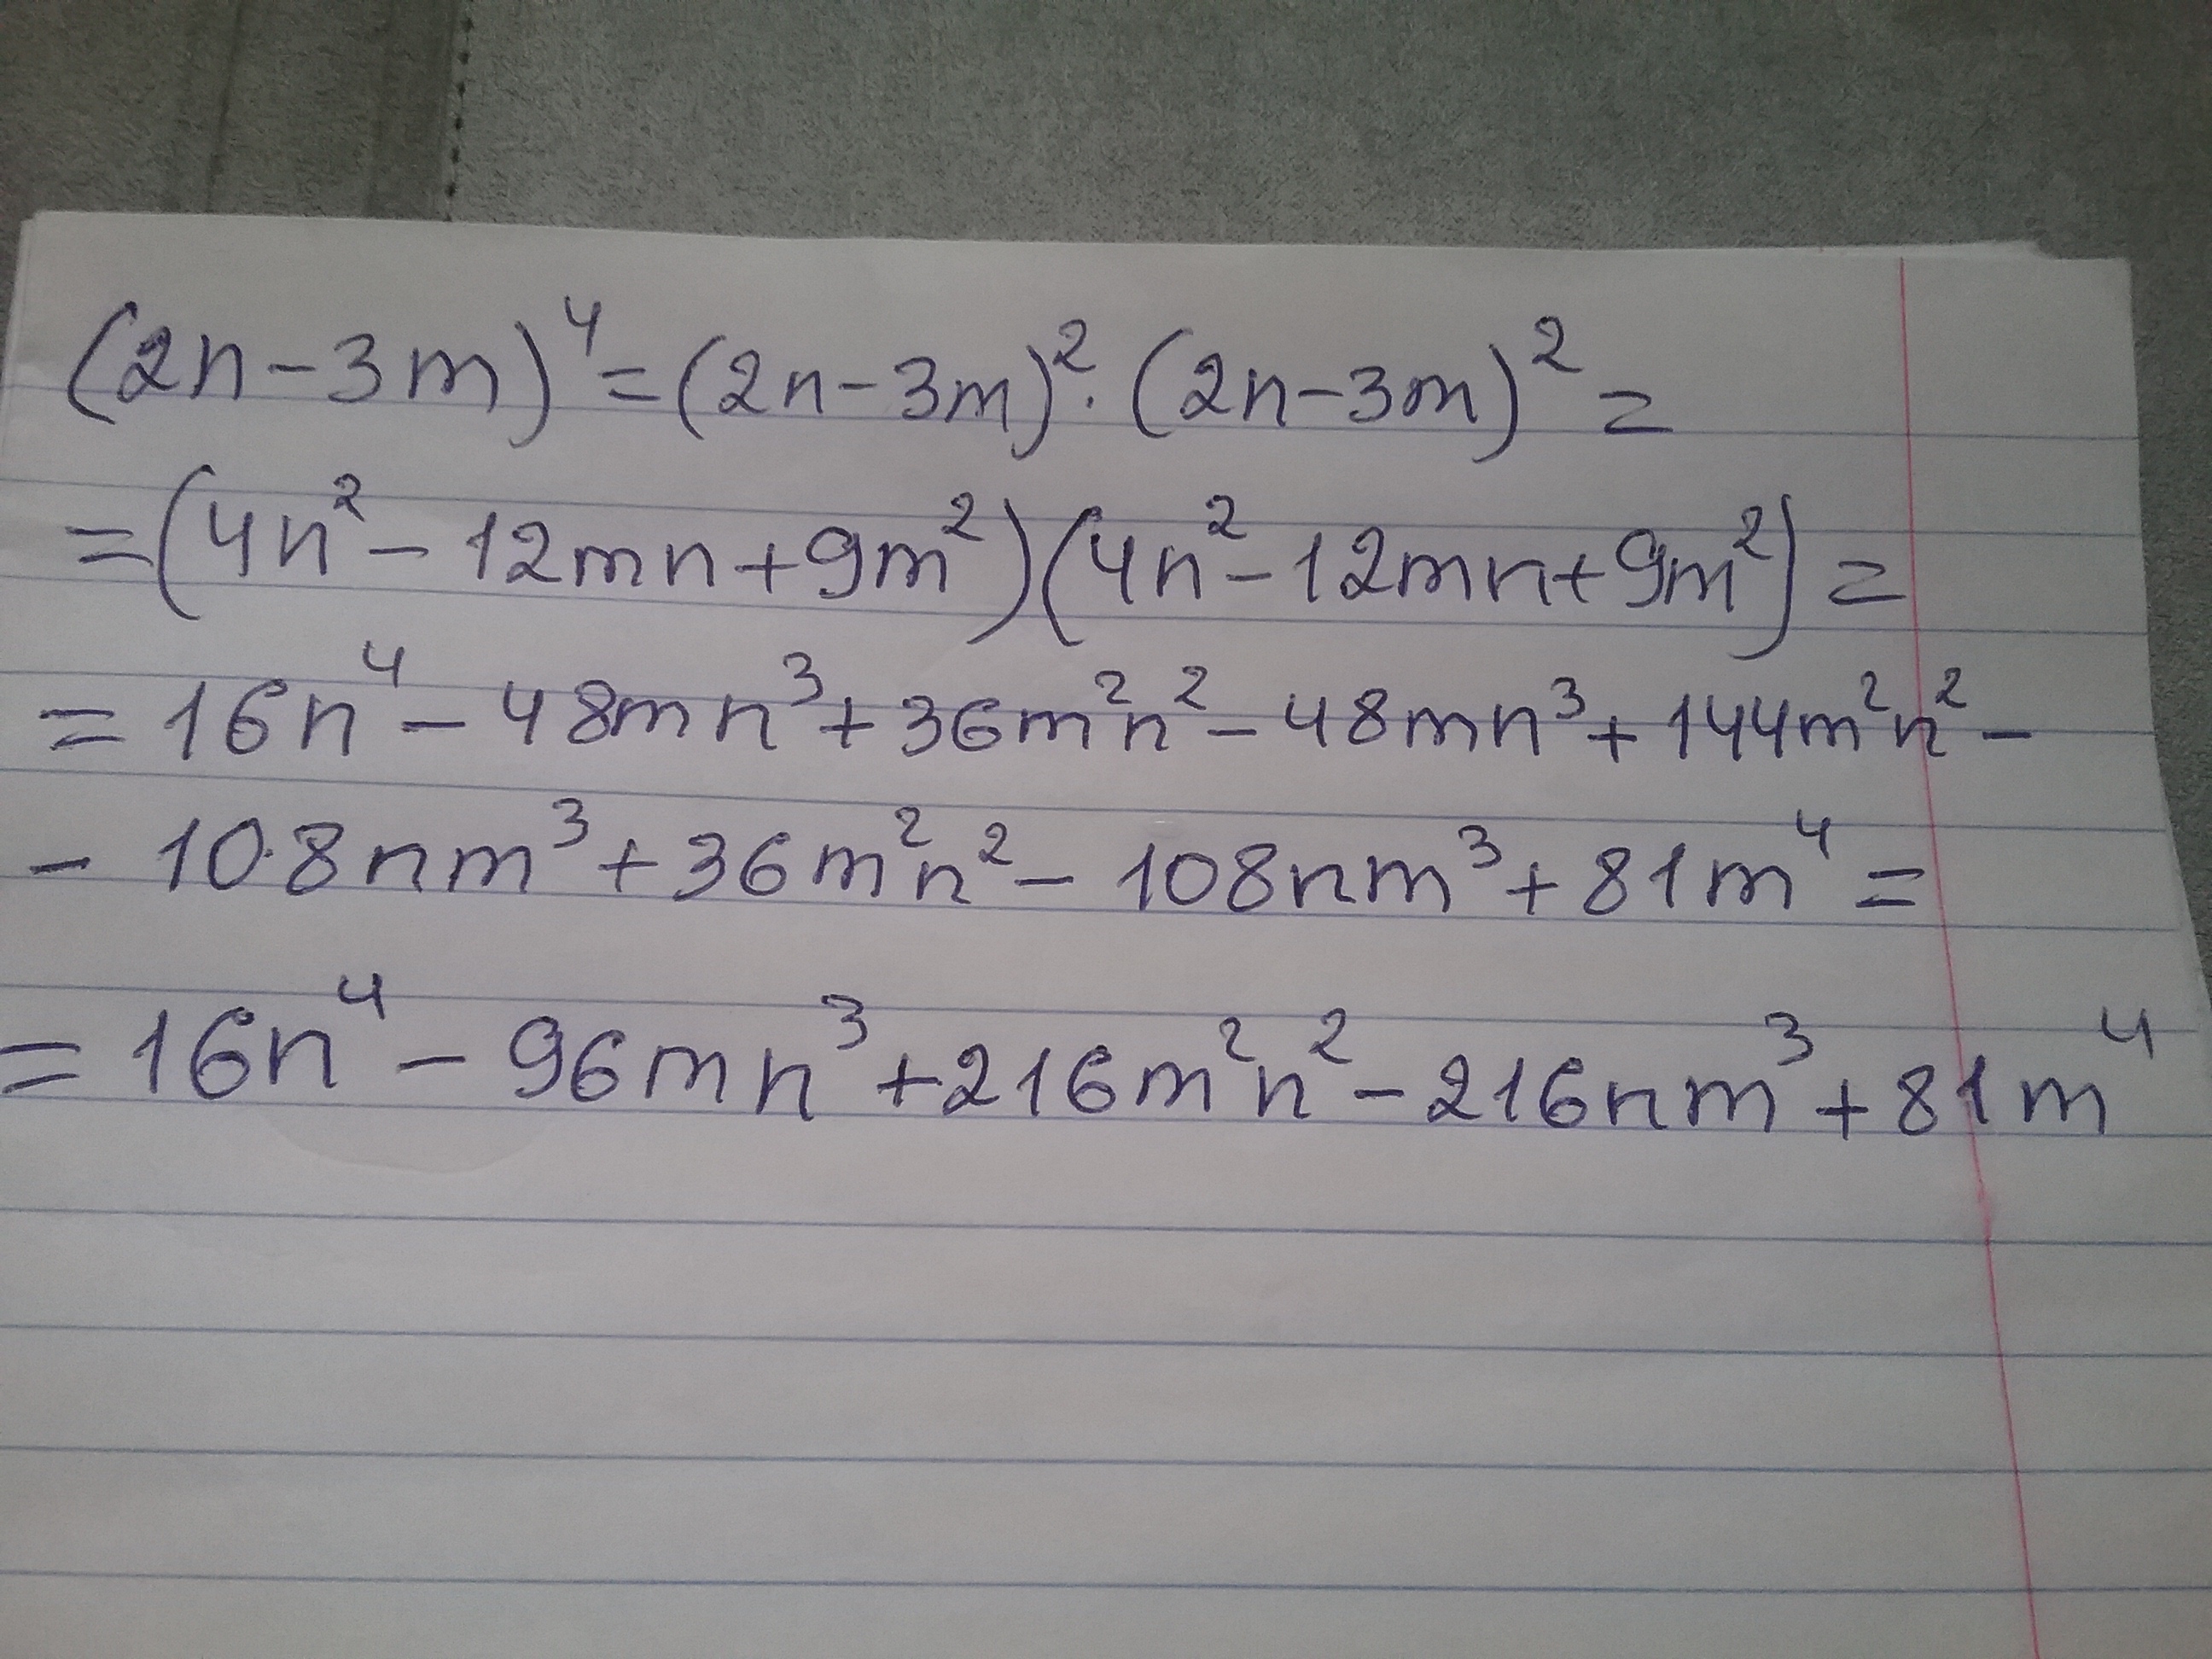 (2n-3m)⁴=(2n-3m)²·(2n-3m)²=
=(4n²-12mn+9m²)(4n²-12mn+9m²)=
=16n⁴-48mn³+36m²n²-48mn³+144m²n²-
-108nm³+36m²n²-108nm³+81m⁴=
=16n⁴-96mn³+216m²n²-216nm³+81m⁴